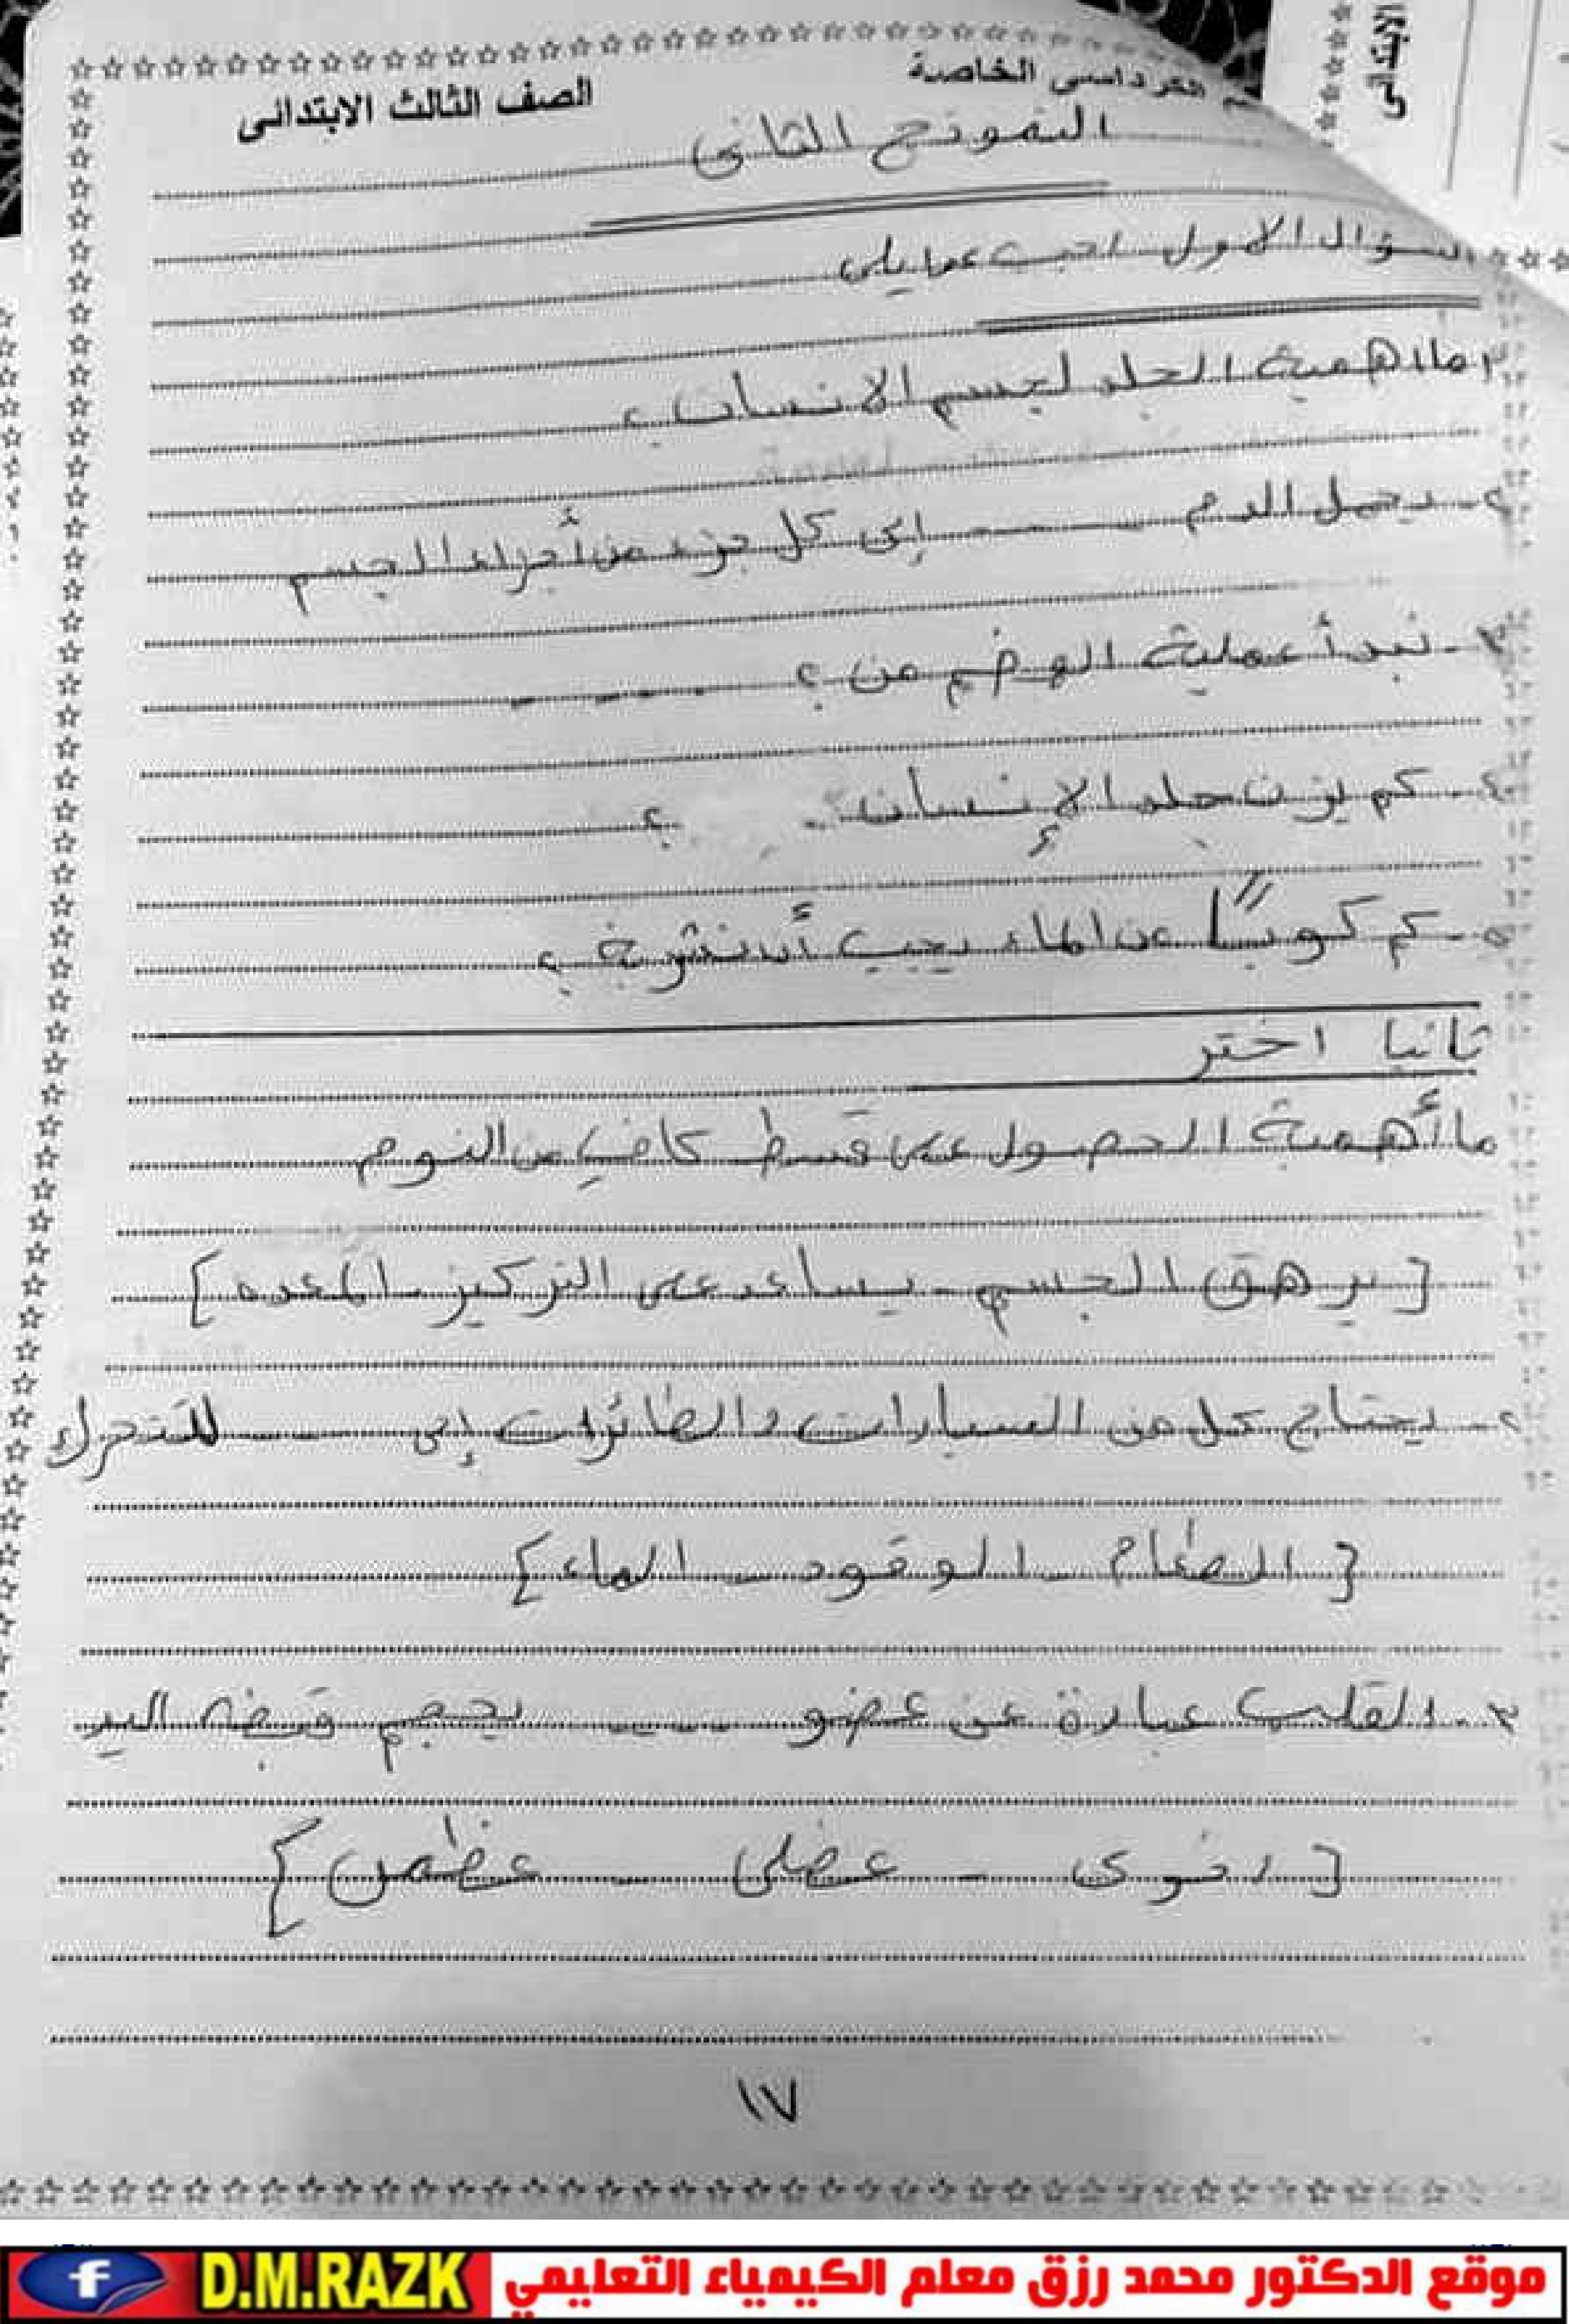 الكرداسى الخاصة
الصف الثالث الابتدائى
الابتدائى
النموذج الثانى
السؤال الاول اجب عمايلى
١ ما اهمية الجلد لجسم الانسان ؟
٢- يحمل الدم ---- إلى كل جزء من أجزاء الجسم
٣- تبدأ عملية الهضم من ؟ -----
٤- كم يزن جلد الإنسان ؟
٥- كم كوباً من الماء يجب أن نشربة ؟
ثانيا اختر
ما أهمية الحصول على قسط كافى من النوم
[ يرهق الجسم - يساعد على التركيز - المعده ]
٢- يحتاج كل من السيارات والطائرات إلى ---- للتحرك
[ الطعام - الوقود - الماء ]
٣- القلب عبارة عن عضو ---- بحجم قبضه اليد
[ - عضلى - ]
١٧
D.M.RAZK موقع الدكتور محمد رزق معلم الكيمياء التعليمي